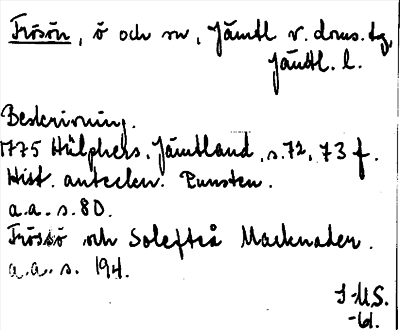 Frösön, ö och sn, Jämtl v. doms.lag,
Jämtl. l.
Beskrivning.
1775 Hülphers. Jämtland, s. 72, 73 f.
Hist. antecken. Runsten.
a.a. s. 80.
Frössö och Solefteå Macknader.
a.a. s. 194.
-61.